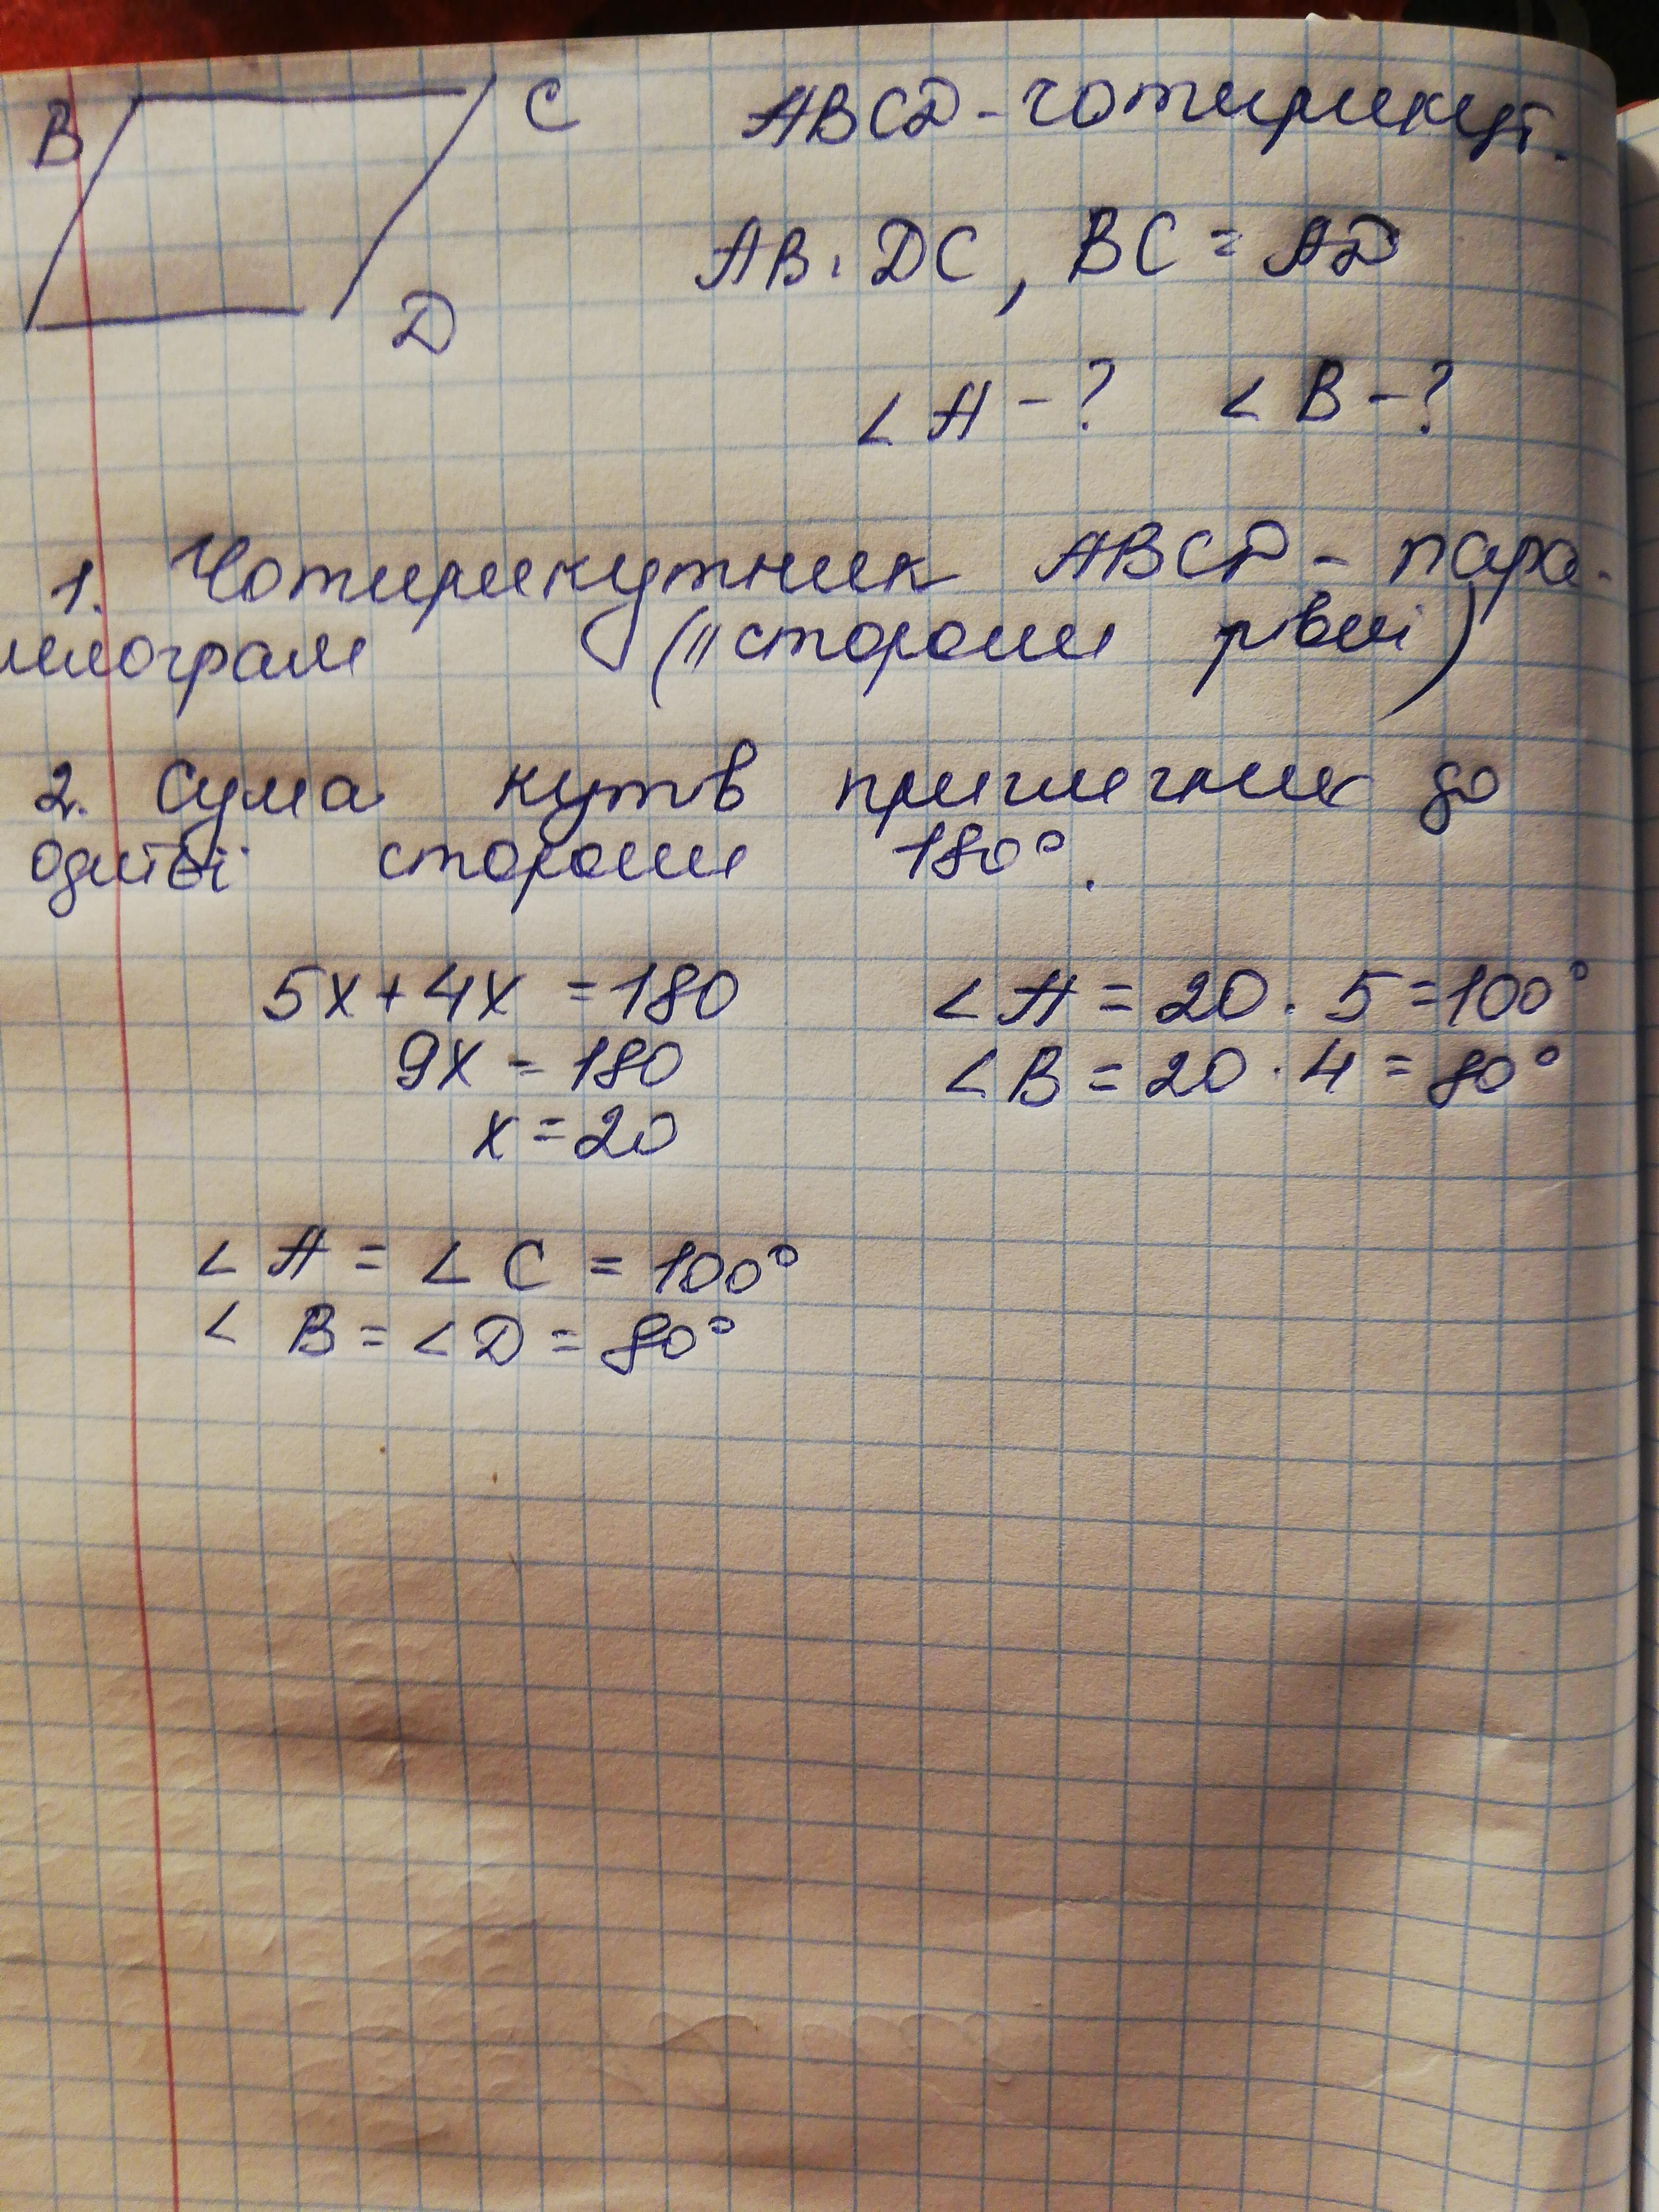 B C ABCD - чотирикут.
AB = DC, BC = AD
D
∠A - ? ∠B - ?
1. Чотирикутник ABCD - пара-
лелограм (|| сторони рівні)
2. Сума кутів прилеглих до
однієї сторони 180°.
5x + 4x = 180 ∠A = 20 · 5 = 100°
9x = 180 ∠B = 20 · 4 = 80°
x = 20
∠A = ∠C = 100°
∠B = ∠D = 80°